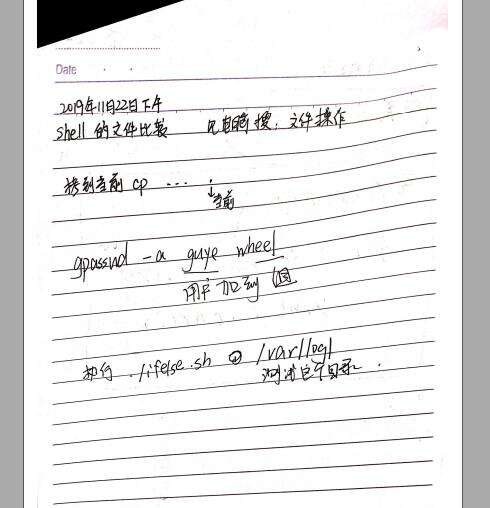 Date
2019年11月22日下午
shell 的文件比较 电脑搜: 文件操作
拷到当前 cp ... .
↓当前
gpasswd -a guye wheel
用户 加到 组
执行 ./ifelse.sh @ /var/log/
测试它个目录.